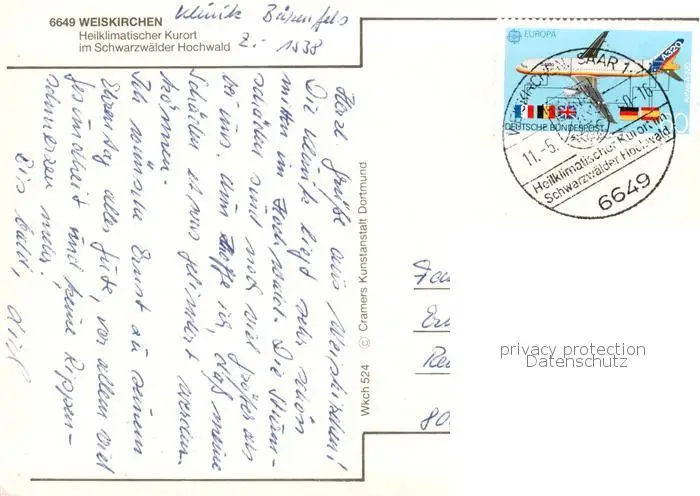 6649 WEISKIRCHEN
Heilklimatischer Kurort
im Schwarzwälder Hochwald
Klinik Bärenfels
Z.-1538
Herzl. Grüße aus Weiskirchen!
Die Klinik liegt sehr schön
mitten im Hochwald. Die Sturm-
schäden sind noch viel größer als
bei uns. Nun hoffe ich, daß meine
Schulter etwas gelindert werden
können.
Ich wünsche Ernst zu seinem
Ehrentag alles Gute, vor allem viel
Gesundheit und keine Rippen-
schmerzen mehr.
Bis bald,
Wkch 524 © Cramers Kunstanstalt Dortmund
EUROPA
A320
DEUTSCHE BUNDESPOST
SAAR 1
11.-5.
Heilklimatischer Kurort im
Schwarzwälder Hochwald
6649
privacy protection
Datenschutz
80